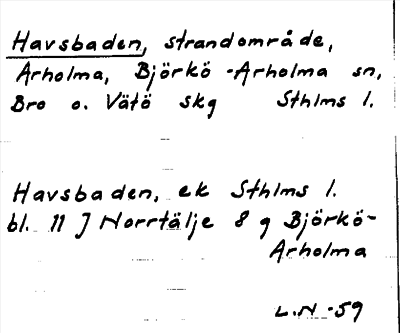 Havsbaden, strandområde,
Arholma, Björkö-Arholma sn,
Bro o. Vätö skg Sthlms l.
Havsbaden, ek Sthlms l.
bl. 11 J Norrtälje 8 g Björkö-
Arholma
L.N -59